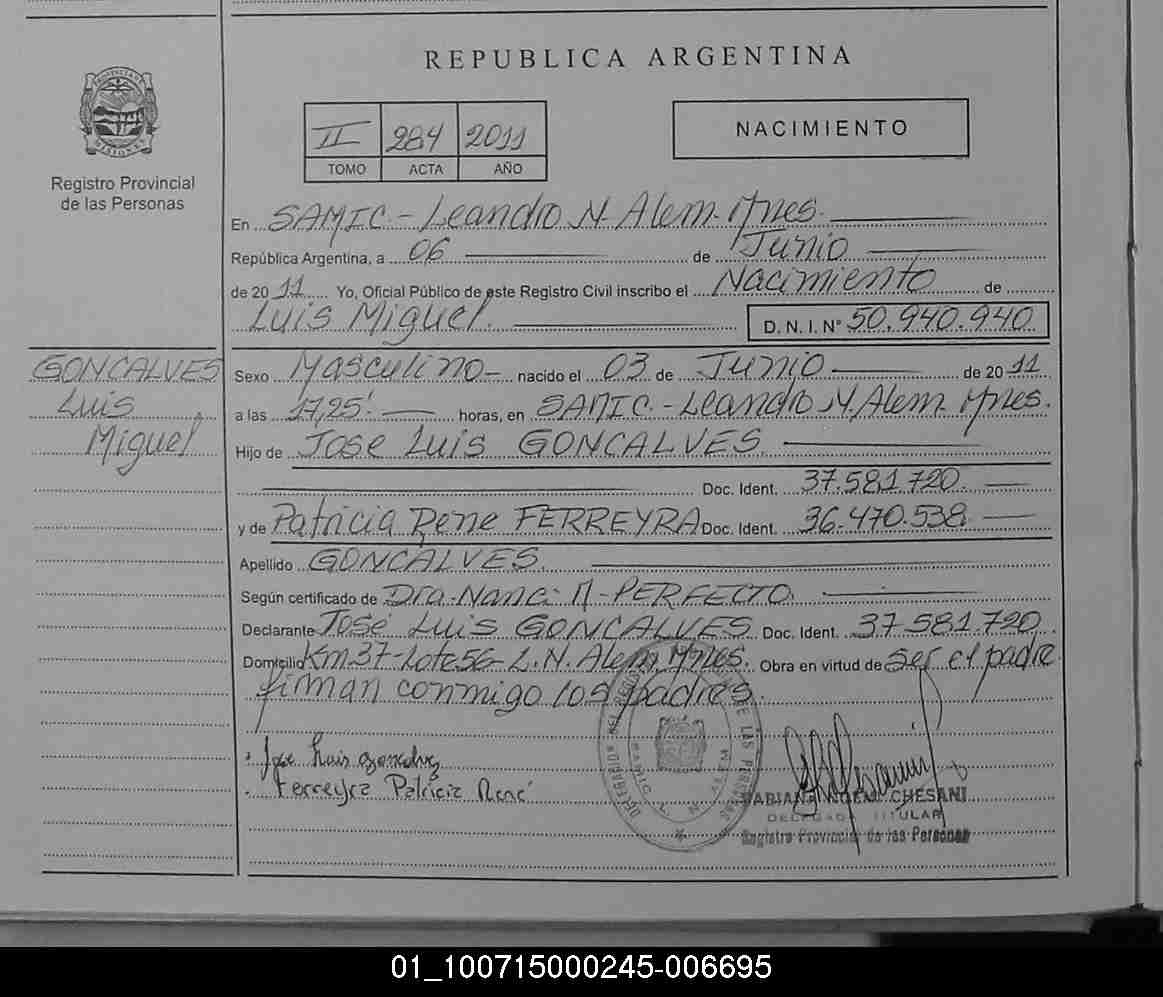 REPUBLICA ARGENTINA
PROVINCIA DE
MISIONES
Registro Provincial
de las Personas
II 284 2011
TOMO ACTA AÑO
NACIMIENTO
En SAMIC - Leandro N. Alem - Mnes.
República Argentina, a 06 de Junio
de 2011 Yo, Oficial Público de este Registro Civil inscribo el Nacimiento de
Luis Miguel. D. N. I. N° 50.940.940
GONCALVES
Luis
Miguel
Sexo Masculino - nacido el 03 de Junio de 2011
a las 17,25' horas, en SAMIC - Leandro N. Alem - Mnes.
Hijo de Jose Luis GONCALVES
Doc. Ident. 37.581.720.
y de Patricia Rene FERREYRA Doc. Ident. 36.470.538.
Apellido GONCALVES.
Según certificado de Dra. Nanci M - PERFECTO.
Declarante José Luis GONCALVES Doc. Ident. 37.581.720.
Domicilio Km 37 - Lote 56 - L. N. Alem Mnes. Obra en virtud de ser el padre
firman conmigo los padres.
Jose Luis Goncalves
Ferreyra Patricia René
FABIANA NOEMI CHESANI
DELEGADA TITULAR
Registro Provincial de las Personas
01_100715000245-006695